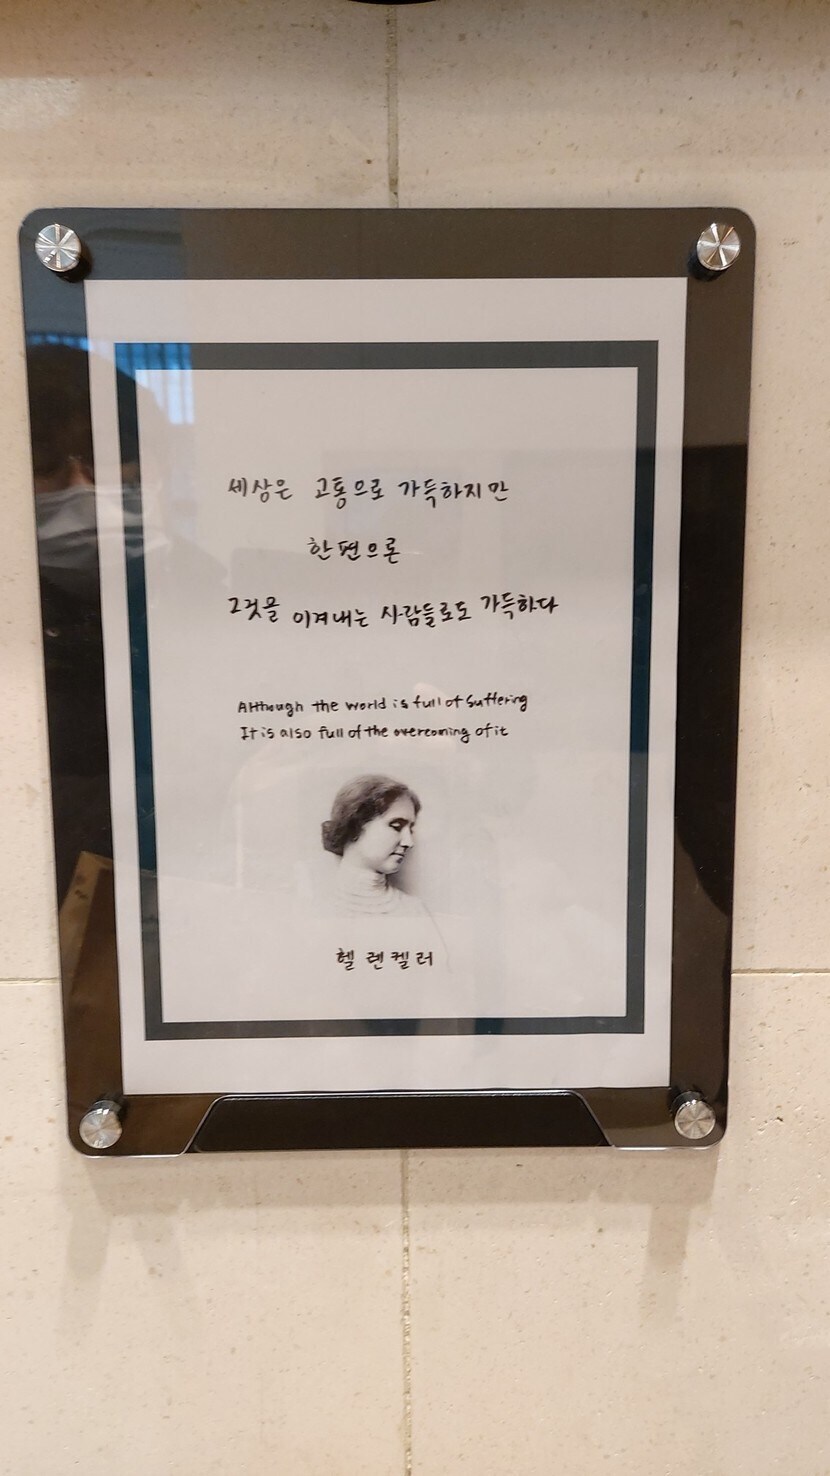 세상은 고통으로 가득하지만
한편으론
그것을 이겨내는 사람들로도 가득하다
Although the world is full of Suffering
It is also full of the overcoming of it
헬렌켈러